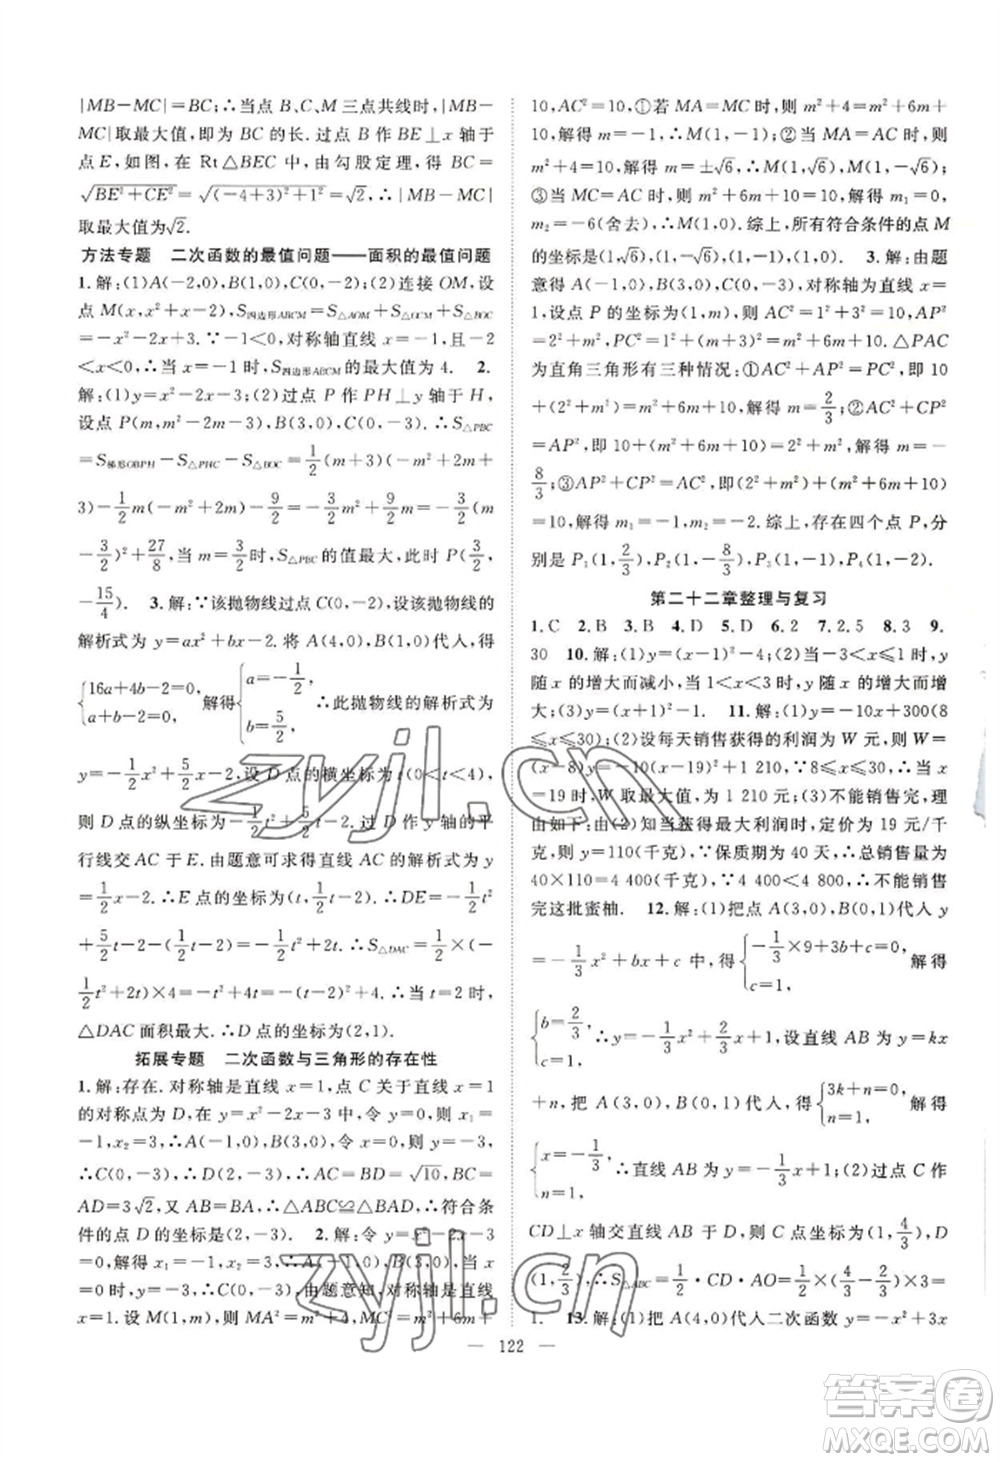 |MB-MC|=BC;∴当点 B、C、M 三点共线时,|MB-
MC|取最大值,即为 BC 的长. 过点 B 作 BE⊥x 轴于
点 E,如图,在 Rt△BEC 中,由勾股定理,得 BC=
√(BE²+CE²)=√((-4+3)²+(-1)²)=√2,∴|MB-MC|
取最大值为√2.
方法专题 二次函数的最值问题——面积的最值问题
1.解:(1)A(-2,0),B(1,0),C(0,-2);(2)连接 OM,设
点 M(x,x²+x-2),S四边形ABCM=S△AOM+S△OCM+S△BOC
=-x²-2x+3. ∵-1<0,对称轴直线 x=-1,且-2
<x<0,∴当 x=-1 时,S四边形ABCM的最大值为 4. 2.
解:(1)y=x²-2x-3;(2)过点 P 作 PH⊥y 轴于 H,
设点 P(m,m²-2m-3),B(3,0),C(0,-3). ∴S△PBC
=S梯形OBPH-S△PHC-S△BOC=1/2(m+3)(-m²+2m+
3)-1/2m(-m²+2m)-9/2=-3/2m²+9/2m=-3/2(m-
3/2)²+27/8,当 m=3/2时,S△PBC 的值最大,此时 P(3/2,
-15/4) 3.解:∵该抛物线过点 C(0,-2),设该抛物线的
解析式为 y=ax²+bx-2. 将 A(4,0),B(1,0)代人,得
{16a+4b-2=0, a+b-2=0, 解得{a=-1/2, b=5/2, ∴此抛物线的解析式为
y=-1/2x²+5/2x-2;设 D 点的横坐标为 t(0<t<4),
则 D 点的纵坐标为-1/2t²+5/2t-2. 过 D 作 y 轴的平
行线交 AC 于 E. 由题意可求得直线 AC 的解析式为 y
=1/2x-2. ∴E 点的坐标为(t,1/2t-2). ∴DE=-1/2t²
+5/2t-2-(1/2t-2)=-1/2t²+2t. ∴S△DAC=1/2×(-
1/2t²+2t)×4=-t²+4t=-(t-2)²+4,∴当 t=2 时,
△DAC 面积最大. ∴D 点的坐标为(2,1).
拓展专题 二次函数与三角形的存在性
1.解:存在. 对称轴是直线 x=1,点 C 关于直线 x=1
的对称点为 D,在 y=x²-2x-3 中,令 y=0,则 x₁=
-1,x₂=3,∴A(-1,0),B(3,0),令 x=0,则 y=-3,
∴C(0,-3),∴D(2,-3),∴AC=BD=√10,BC=
AD=3√2,又 AB=BA,∴△ABC≌△BAD,∴符合条
件的点 D 的坐标是(2,-3) 2.解:令 x=0,y=-3
=0 时,x=-3,由题意知,对称轴是直线
x=1. 设 M(1,m),则 MA²=m²+4,MC²=m²+6m+
10,AC²=10,①若 MA=MC 时,则 m²+4=m²+6m+
10,解得 m=-1,∴M(1,-1);②当 MA=AC 时,则
m²+4=10,解得 m=±√6,∴M(1,√6),M(1,-√6);
③当 MC=AC 时,则 m²+6m+10=10,解得 m₁=0,
m₂=-6(舍去),∴M(1,0). 综上,所有符合条件的点 M
的坐标是(1,√6),(1,-√6),(1,-1),(1,0) 3.解:由题
意得 A(-2,0),B(4,0),C(0,3),对称轴为直线 x=
1,设点 P 的坐标为(1,m),则 AC²=1²+3²=10,AP²
=2²+m²,PC²=1²+(3+m)²=m²+6m+10. △PAC
为直角三角形有三种情况:①AC²+AP²=PC²,即 10
+2²+m²=m²+6m+10,解得 m=-2/3;②AC²+CP²
=AP²,即 10+(m²+6m+10)=2²+m²,解得 m=-
8/3;③AP²+CP²=AC²,即(2²+m²)+(m²+6m+10)
=10,解得 m₁=-1,m₂=-2. 综上,存在四个点 P,分
别是 P₁(1,2/3),P₂(1,-8/3),P₃(1,-1),P₄(1,-2).
第二十二章整理与复习
1.C 2.B 3.B 4.D 5.D 6.2 7.2.5 8.3 9.
30 10.解:(1)y=(x-1)²-4;(2)当 x≤1 时,y
随 x 的增大而减小,当 x≥1 时,y 随 x 的增大而增
大;(3)y=(x-3)² 11.解:(1)y=-10x+300(8
≤x≤30);(2)设每天销售获得的利润为 W 元,则 W=
(x-8)y=-10(x-19)²+1 210,∵8≤x≤30,∴当 x
=19 时,W 取最大值,为 1 210 元;(3)不能销售完,理
由如下:当获得最大利润时,定价为 19 元/千
克,则 y=110(千克),∵保质期为 40 天,∴总销售量为
40×110=4 400,又∵4 400<4 800,∴不能销售
完这批蜜柚. 12.解:(1)把点 A(3,0),B(0,1)代人 y
=-1/3x²+bx+c 中,得{-1/3×9+3b+c=0, c=1, 解得
{b=2/3, c=1, ∴y=-1/3x²+2/3x+1,设直线 AB 为 y=kx
+n,把 A(3,0),B(0,1)代人,得{3k+n=0, n=1, 解得
{x=-1/3, n=1, ∴直线 AB 为 y=-1/3x+1;(2)过点 C 作
CD⊥x 轴交直线 AB 于 D,则 C 点坐标为(1,4/3),
D(1,2/3),∴S△ABC=1/2·CD·AO=1/2×2/3×3=
1. 13.解:(1)把 A(4,0)代人二次函数 y=-x²+bx
— 122 —
zyjl.cn
zyjl.cn
答案圈
MXQE.COM